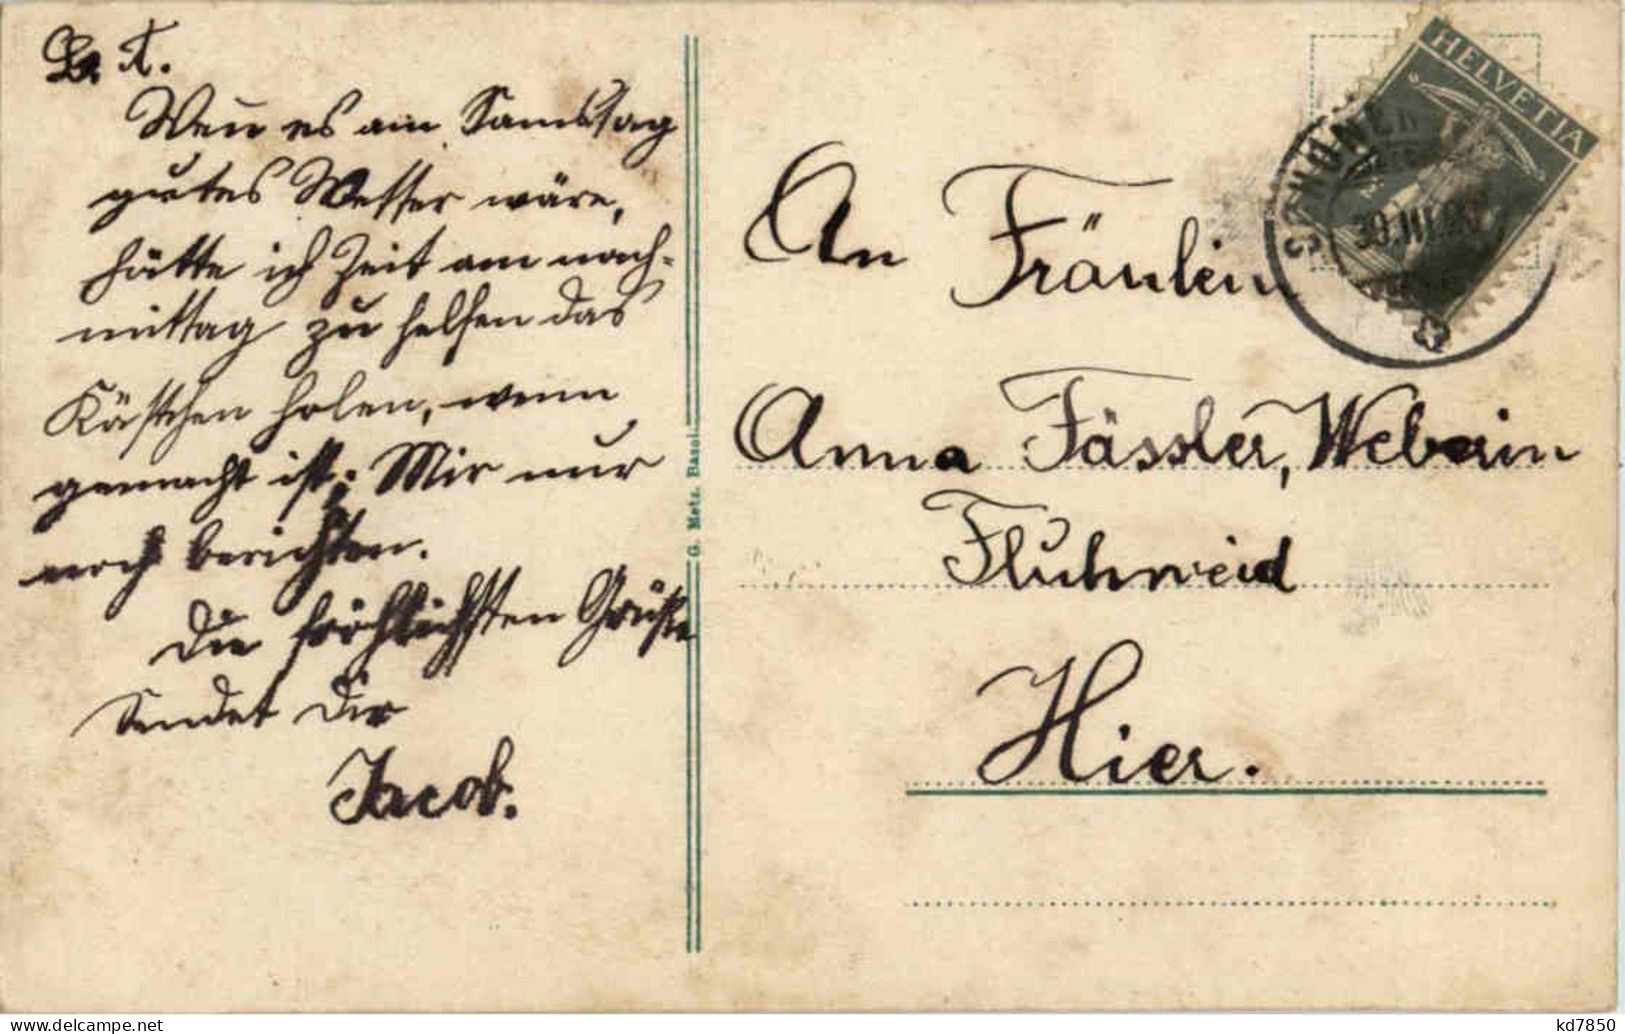 L. A.
Wen es am Samstag
gutes Wetter wäre,
hätte ich Zeit am nach-
mittag zu helfen das
Kästchen holen, wenn
gemacht ist; Mir nur
noch berichten.
Die fröhlichsten Grüße
Sendet Dir
Jacob.
G. Metz, Basel
HELVETIA
An Fräulein
Anna Fässler, Weberin
Fluhweid
Hier.
kd7850